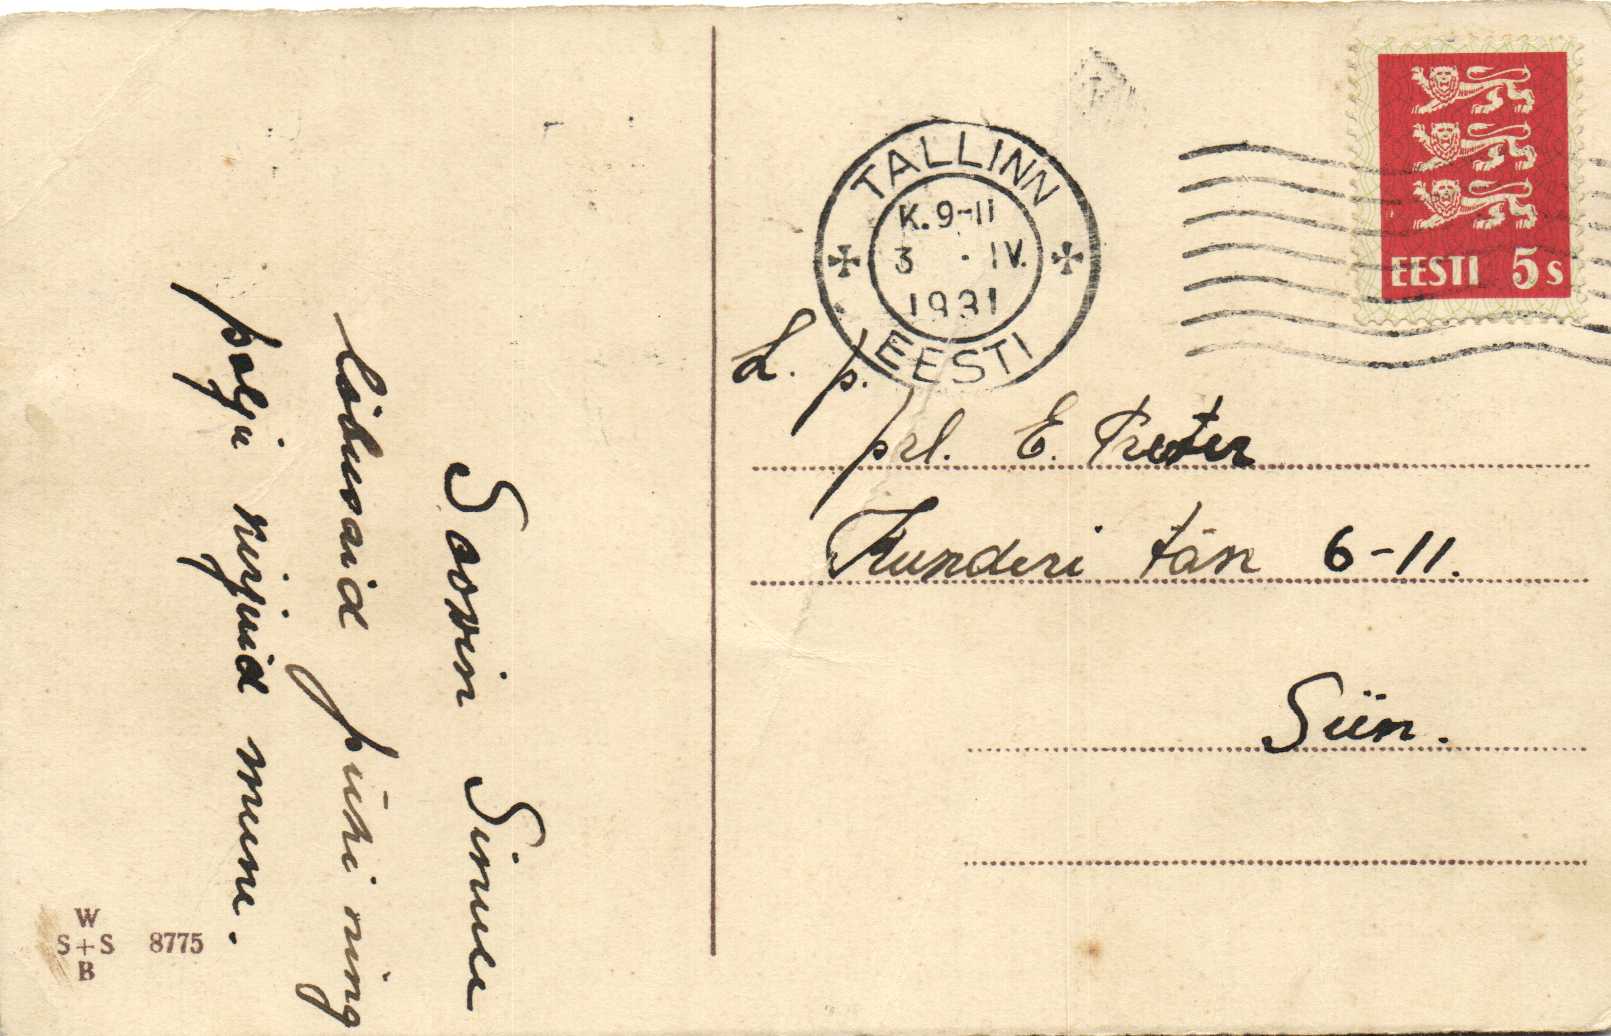 Soovin Sinule
lõbusaid pühi ning
palju kirjuid mune.
W
S+S 8775
B
TALLINN
K.9-11
3 · IV.
1931
EESTI
EESTI 5s
L. p.
prl. E.
Kunderi tän 6-11.
Siin.